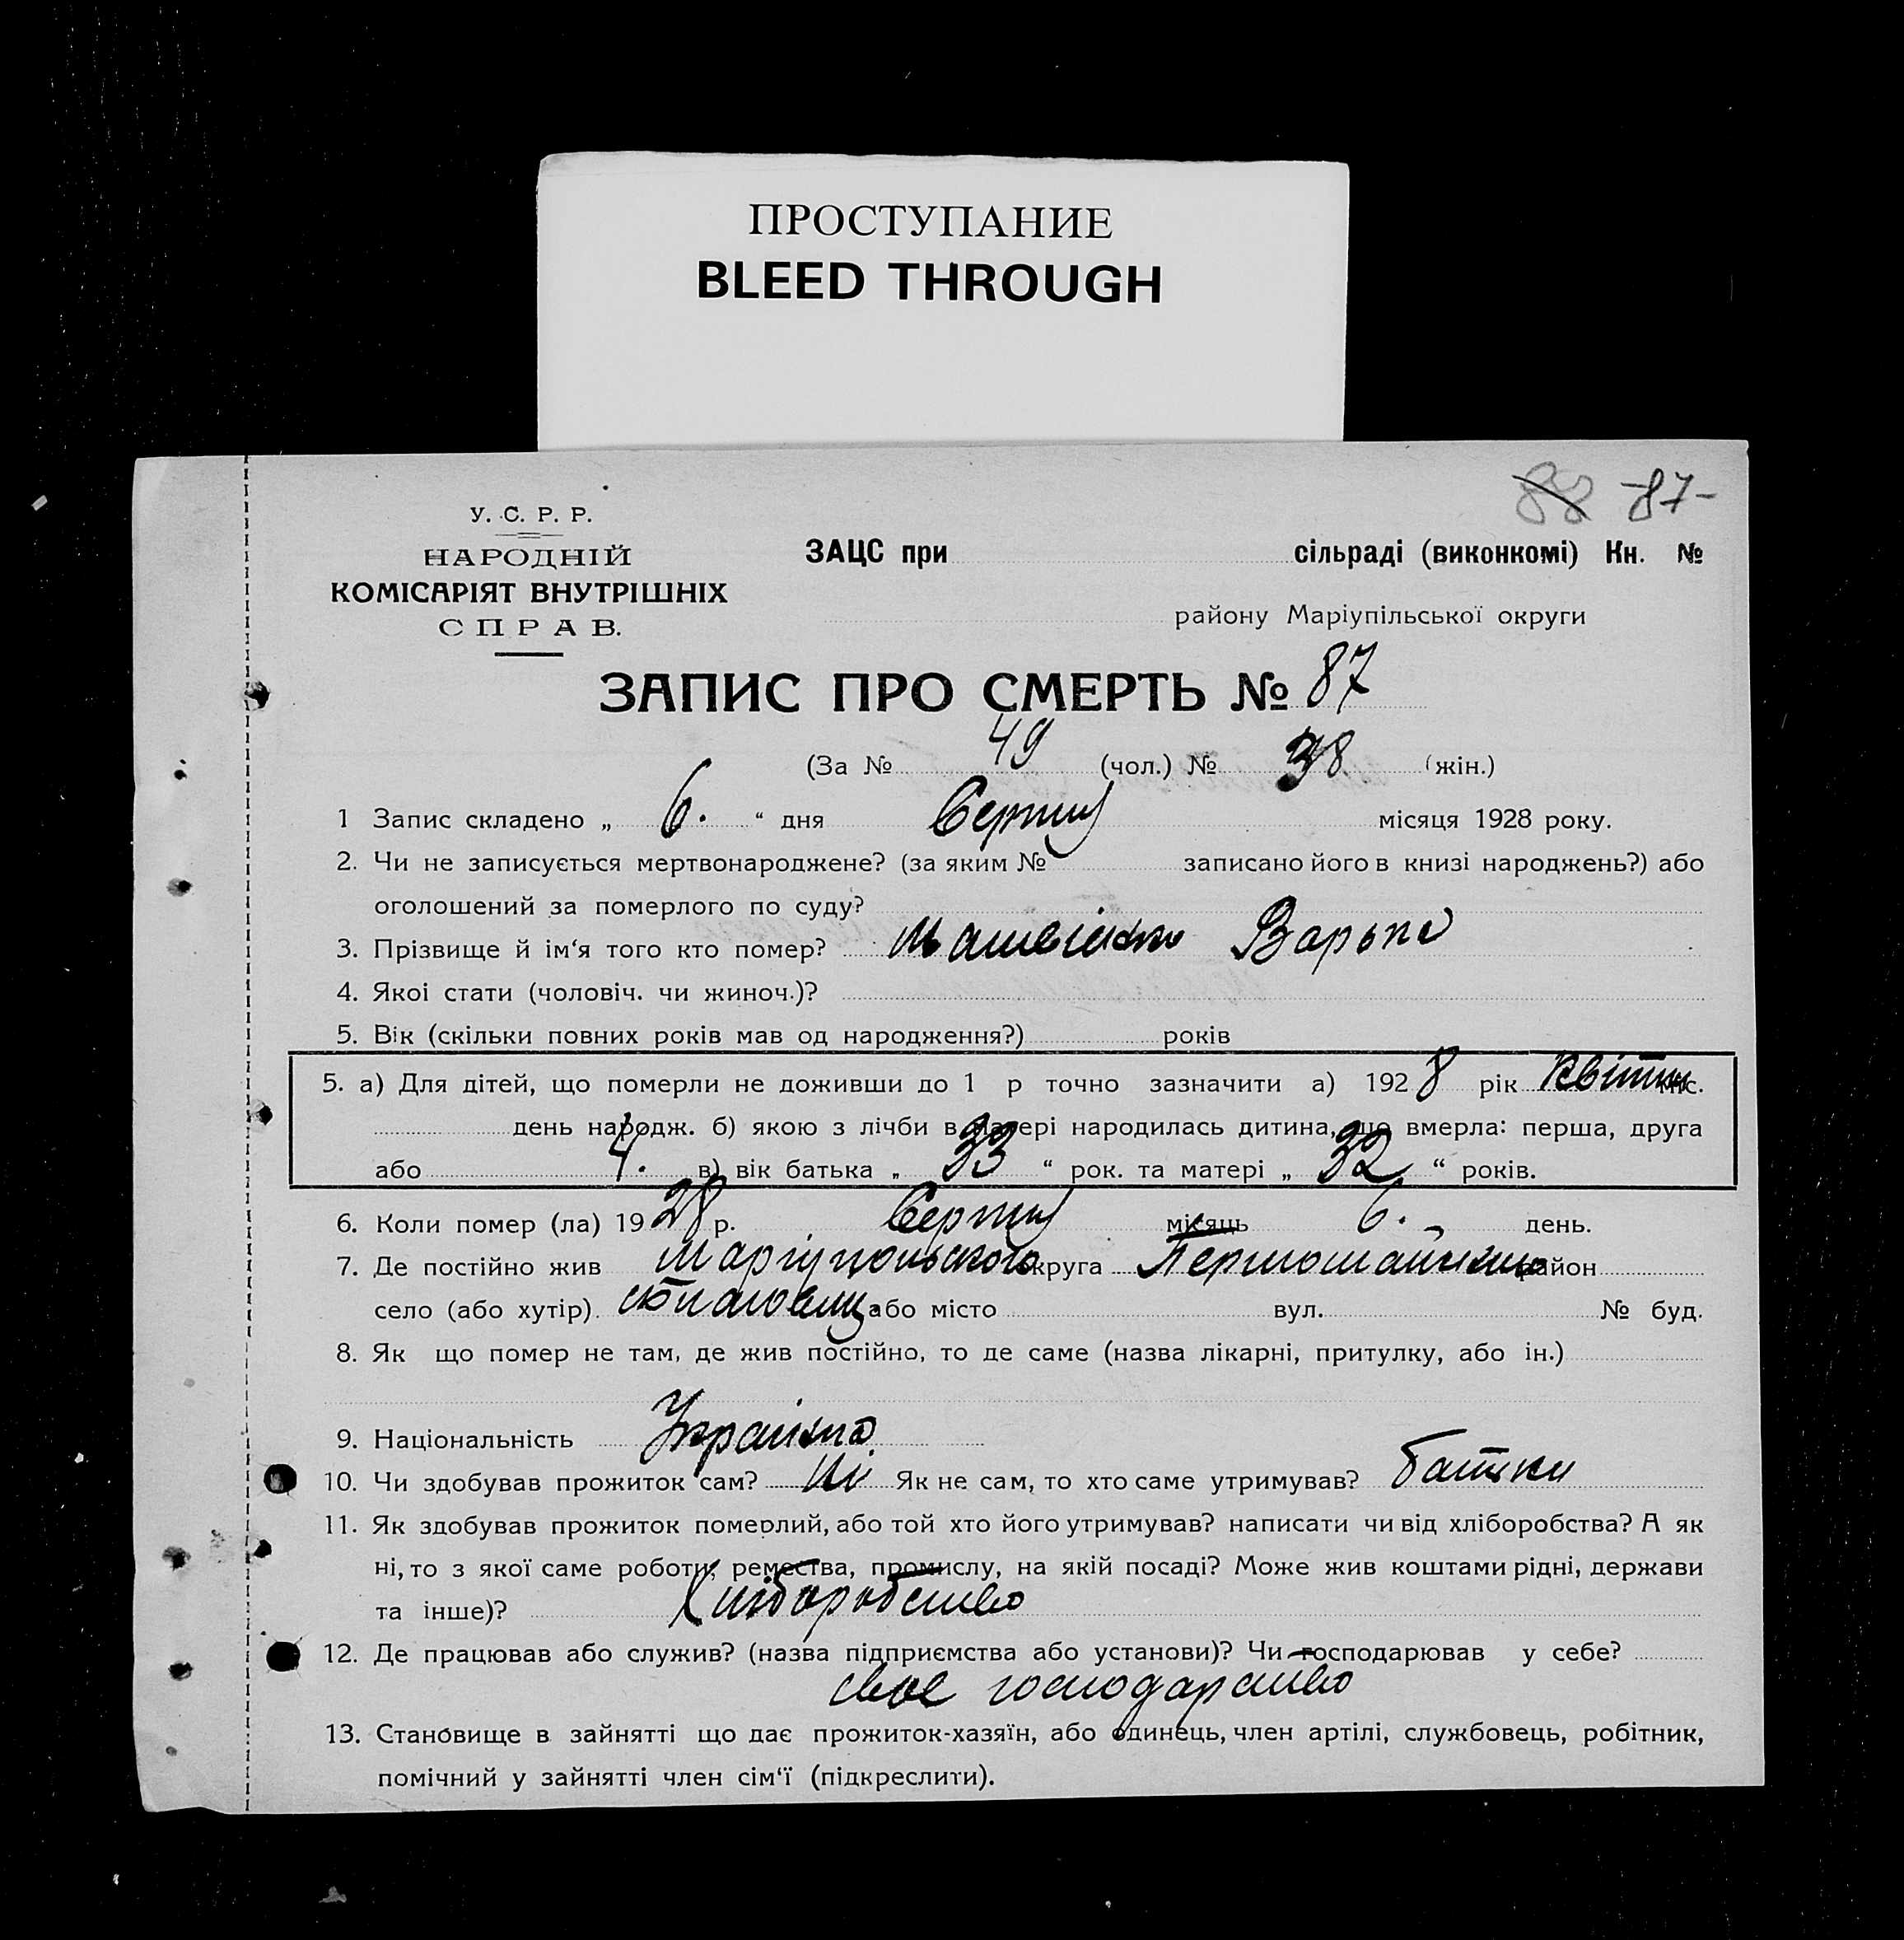 ПРОСТУПАНИЕ
BLEED THROUGH
88 -87-
У. С. Р. Р.
НАРОДНІЙ
КОМІСАРІЯТ ВНУТРІШНІХ
СПРАВ.
ЗАЦС при сільраді (виконкомі) Кн. №
району Маріупільської округи
ЗАПИС ПРО СМЕРТЬ № 87
(За № 49 (чол.) № 38 (жін.)
1 Запис складено „ 6. “ дня Серпня місяця 1928 року.
2. Чи не записується мертвонароджене? (за яким № записано його в книзі народжень?) або
оголошений за померлого по суду?
3. Прізвище й ім‘я того кто помер? Варька
4. Якоі стати (чоловіч. чи жиноч.)?
5. Вік (скільки повних років мав од народження?) років
5. а) Для дітей, що померли не доживши до 1 р точно зазначити а) 1928 рік Квітня міс.
день народж. б) якою з лічби в матері народилась дитина, що вмерла: перша, друга
або 4. в) вік батька „ 33 “ рок. та матері „ 32 “ років.
6. Коли помер (ла) 1928 р. Серпня місяць 6. день.
7. Де постійно жив Маріупольского округа район
село (або хутір) або місто вул. № буд.
8. Як що помер не там, де жив постійно, то де саме (назва лікарні, притулку, або ін.)
9. Національність Українка
10. Чи здобував прожиток сам? Ні Як не сам, то хто саме утримував? батьки
11. Як здобував прожиток померлий, або той хто його утримував? написати чи від хліборобства? А як
ні, то з якої саме роботи, ремества, промислу, на якій посаді? Може жив коштами рідні, держави
та інше)? Хліборобство
12. Де працював або служив? (назва підприємства або установи)? Чи господарював у себе?
своє господарство
13. Становище в зайнятті що дає прожиток-хазяїн, або одинець, член артілі, службовець, робітник,
помічний у зайнятті член сім‘ї (підкреслити).